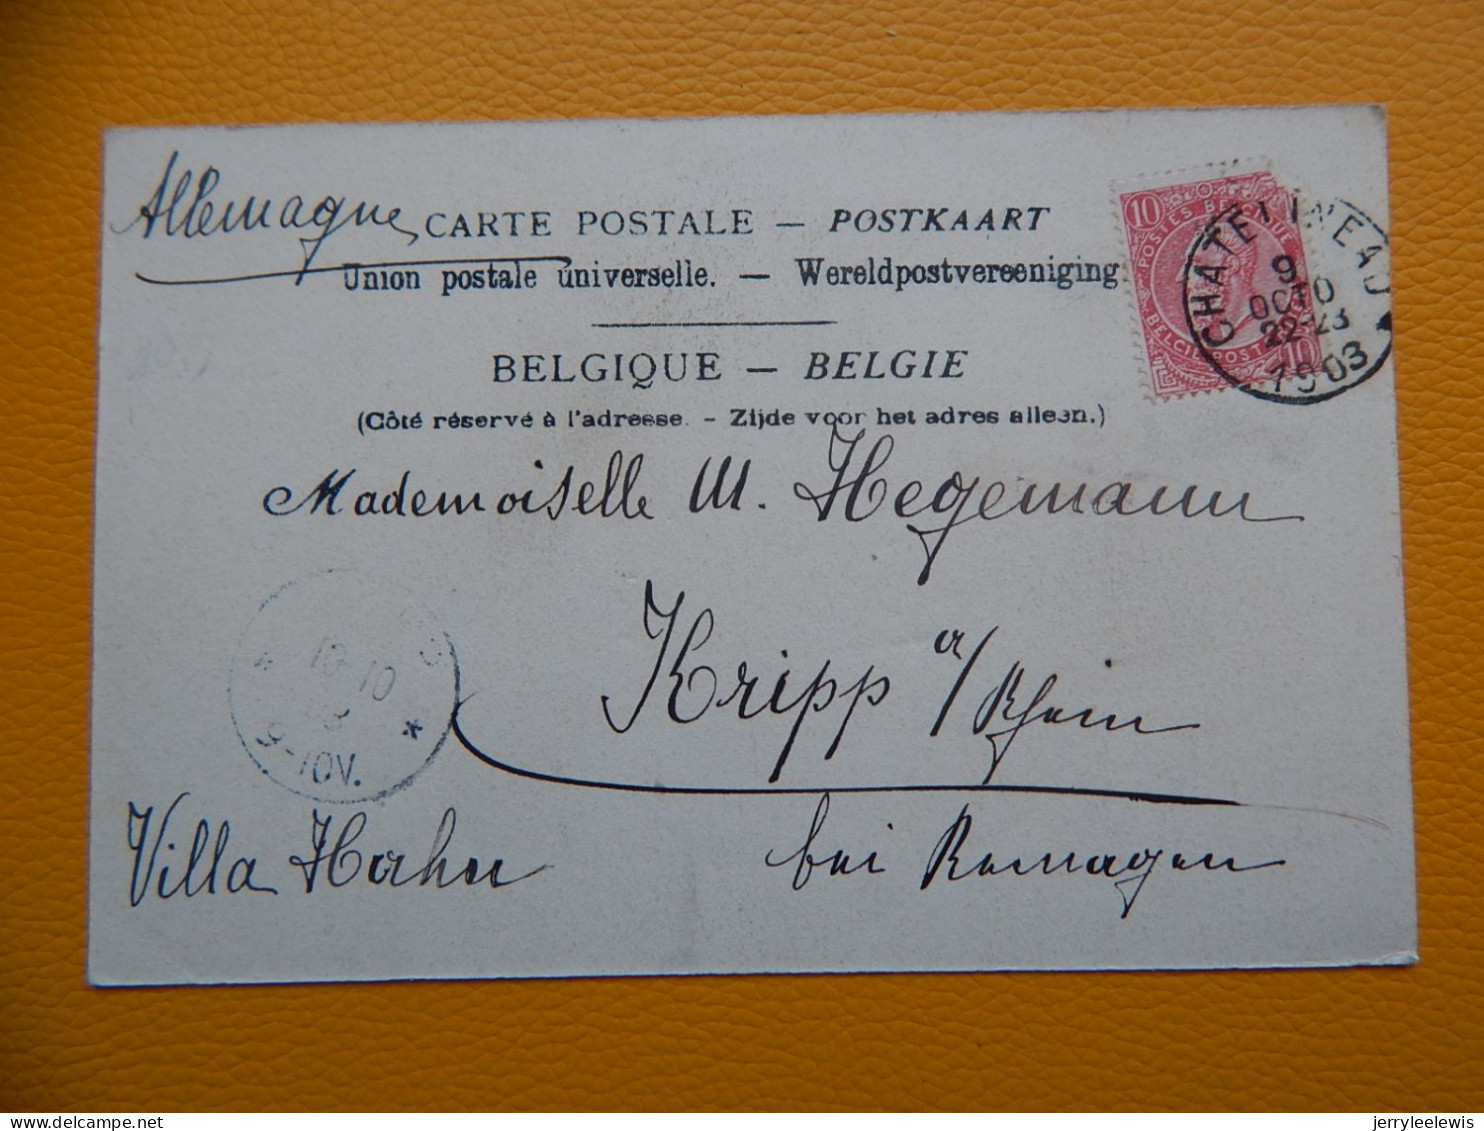 Allemagne
CARTE POSTALE — POSTKAART
Union postale universelle. — Wereldpostvereeniging
BELGIQUE — BELGIE
(Côté réservé à l'adresse. - Zijde voor het adres alleen.)
10 10
POSTES BELGIQUE
BELGIE POSTERIJEN
CHATELINEAU
9
OCTO
22-23
1903
Mademoiselle M. Hegemann
Kripp a/Rhein
10 10
9-10V.
*
Villa Hahn
bei Remagen
jerryleelewis